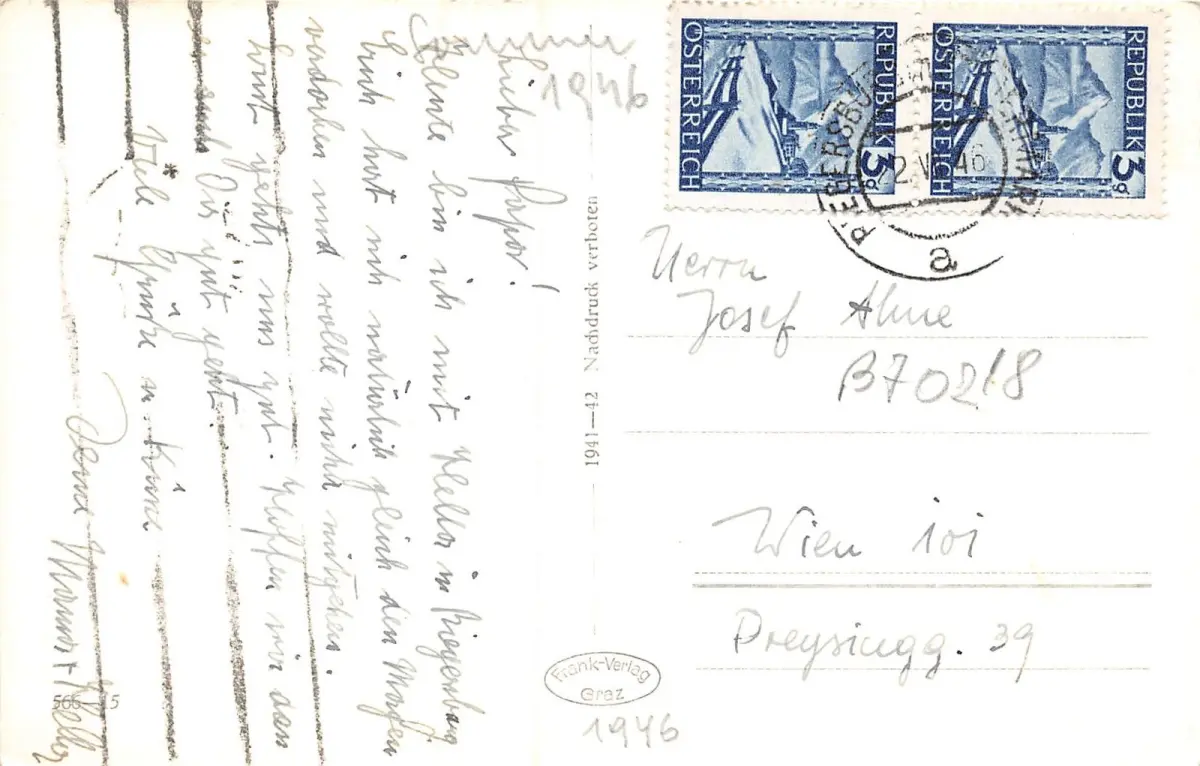 1946
Lieber Papa!
Heute bin ich mit Hella in Riegersburg
hat sich natürlich gleich den Magen
verdorben und wollte nicht mitgehen.
Sonst geht's uns gut. Hoffen wir das
Dir gut geht.
Viele Grüße u. Küsse
Deine Mama + Hella
566—15
1941—42 Nachdruck verboten
Frank-Verlag
Graz
1946
REPUBLIK
ÖSTERREICH
3g
REPUBLIK
ÖSTERREICH
3g
RIEGERSBURG
2.VI.46
a
Herrn
Josef Ahne
B70218
Wien 101
Preysingg. 39